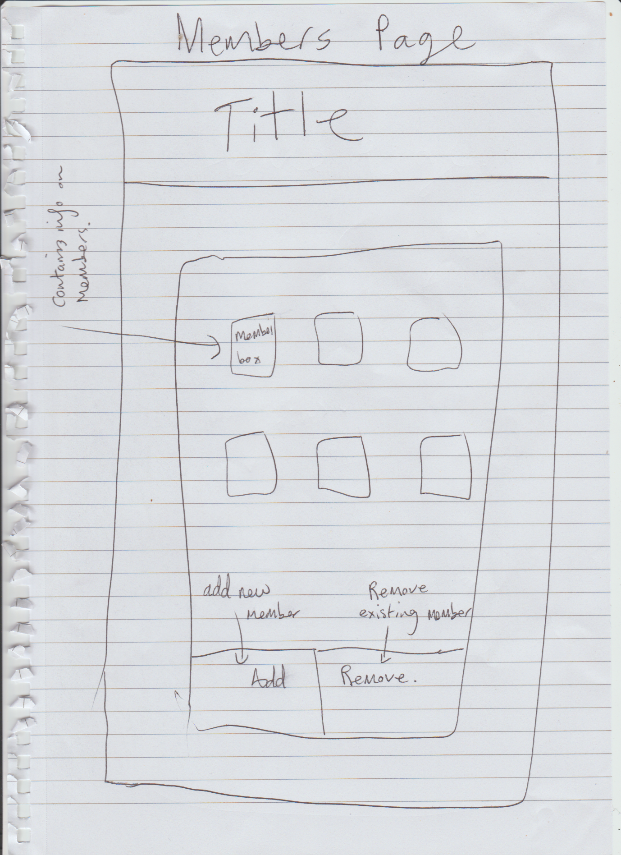 Members Page
Title
Contains info on
Members.
Member
box
add new
member
Remove
existing member
Add
Remove.